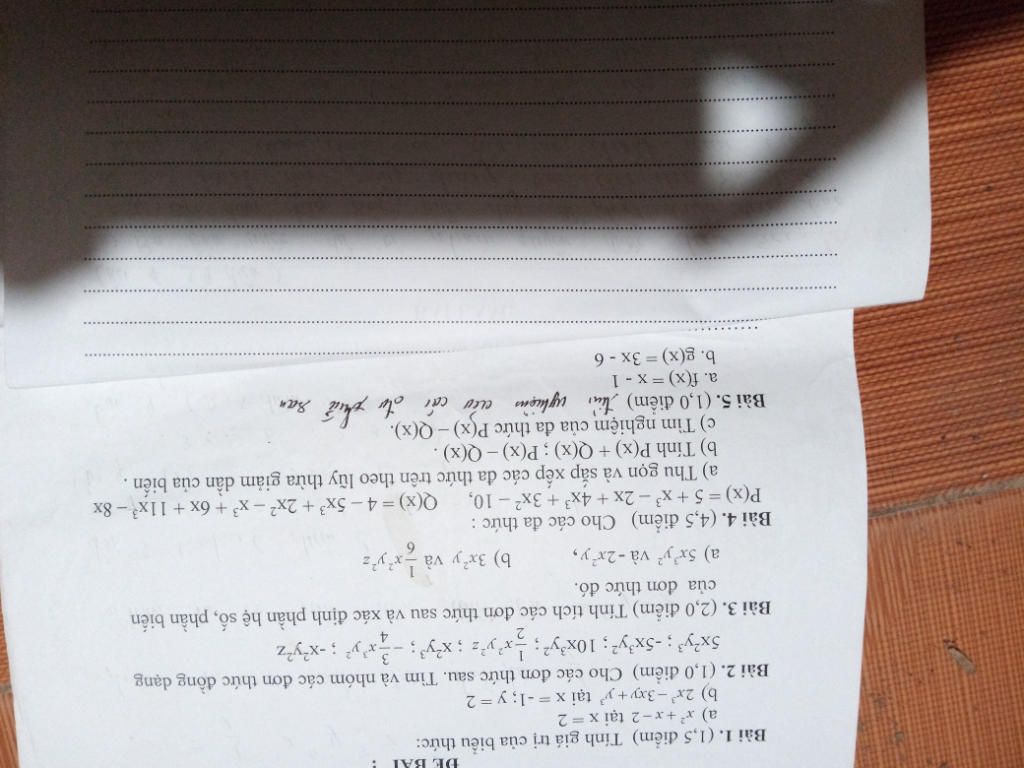 ĐỀ BÀI :
Bài 1. (1,5 điểm) Tính giá trị của biểu thức:
a) x² + x − 2 tại x = 2
b) 2x³ −3xy + y³ tại x = -1; y = 2
Bài 2. (1,0 điểm) Cho các đơn thức sau. Tìm và nhóm các đơn thức đồng dạng
5x²y³ ; -5x³y² ; 10x³y² ; 1/2 x²y²z ; x²y³ ; −3/4 x³y² ; -x²y²z
Bài 3. (2,0 điểm) Tính tích các đơn thức sau và xác định phần hệ số, phần biến
của đơn thức đó.
a) 5x³y² và -2x²y, b) 3x²y và 1/6 x²y²z
Bài 4. (4,5 điểm) Cho các đa thức :
P(x) = 5 + x³ – 2x + 4x³ + 3x² – 10, Q(x) = 4 – 5x³ + 2x² – x³ + 6x + 11x³ – 8x
a) Thu gọn và sắp xếp các đa thức trên theo lũy thừa giảm dần của biến .
b) Tính P(x) + Q(x) ; P(x) – Q(x) .
c) Tìm nghiệm của đa thức P(x) – Q(x).
Bài 5. (1,0 điểm) tìm nghiệm của các sau
a. f(x) = x - 1
b. g(x) = 3x - 6